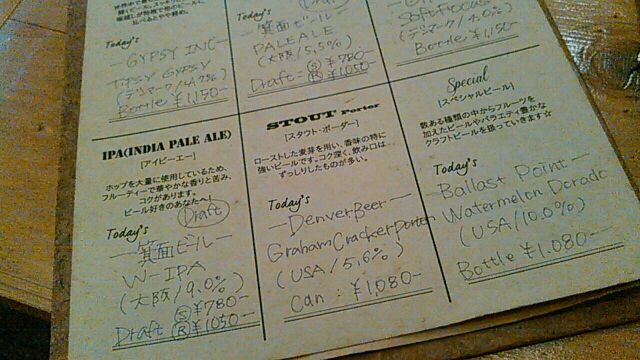 Today's
GYPSY INC
TIPSY GYPSY
(デンマーク/4.7%)
Bottle ¥1,150-
Today's
箕面ビール
PALE ALE
(大阪/5.5%)
Draft: Ⓢ ¥780-
Ⓡ ¥1,050-
SOFT FOCUS
(デンマーク/4.0%)
Bottle: ¥1,150-
IPA(INDIA PALE ALE)
[アイピーエー]
ホップを大量に使用しているため、
フルーティーで華やかな香りと苦み、
コクがあります。
ビール好きのあなたへ!
Draft
Today's
箕面ビール
W-IPA
(大阪/9.0%)
Draft Ⓢ ¥780-
Ⓡ ¥1050-
STOUT Porter
[スタウト・ポーター]
ローストした麦芽を用い、香味の特に
強いビールです。コク深く、飲み口は
ずっしりしたものが多い。
Today's
DenverBeer
Graham Cracker Porter
(USA/5.6%)
Can: ¥1,080-
Special
[スペシャルビール]
数ある種類の中からフルーツを
加えたビールやバラエティ豊かな
クラフトビールを扱っていきます☆
Today's
Ballast Point
Watermelon Dorado
(USA/10.0%)
Bottle ¥1.080-